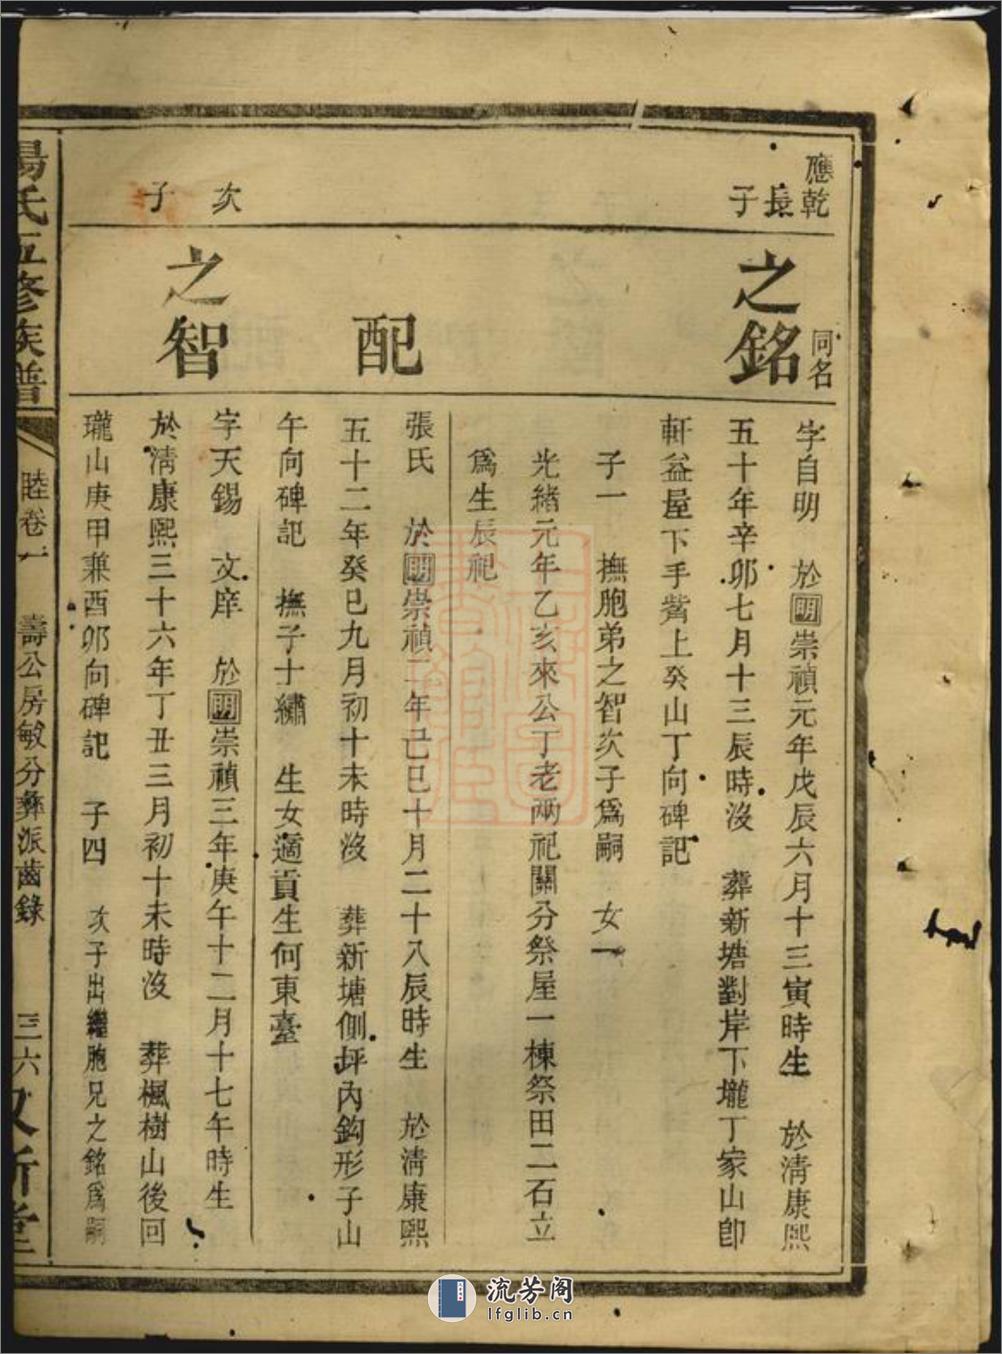 應乾
長子
之銘
同名
字自明　於明崇禎元年戊辰六月十三寅時生　於淸康熙
五十年辛卯七月十三辰時沒　葬新塘對岸下壠丁家山卽
軒益屋下手觜上癸山丁向碑記
子一　撫胞弟之智次子爲嗣　女一
光緖元年乙亥來公丁老兩祀關分祭屋一棟祭田二石立
爲生辰祀
配
張氏　於明崇禎二年己巳十月二十八辰時生　於淸康熙
五十二年癸巳九月初十未時沒　葬新塘側坪內鈎形子山
午向碑記　撫子十繡　生女適貢生何東臺
次子
之智
字天錫　文庠　於明崇禎三年庚午十二月十七午時生
於淸康熙三十六年丁丑三月初十未時沒　葬楓樹山後回
瓏山庚甲兼酉卯向碑記　子四　次子出繼胞兄之銘爲嗣
氏五修族譜
睦卷一
壽公房敏分彝派齒錄
三六
又新堂
流芳阁
lfglib.cn